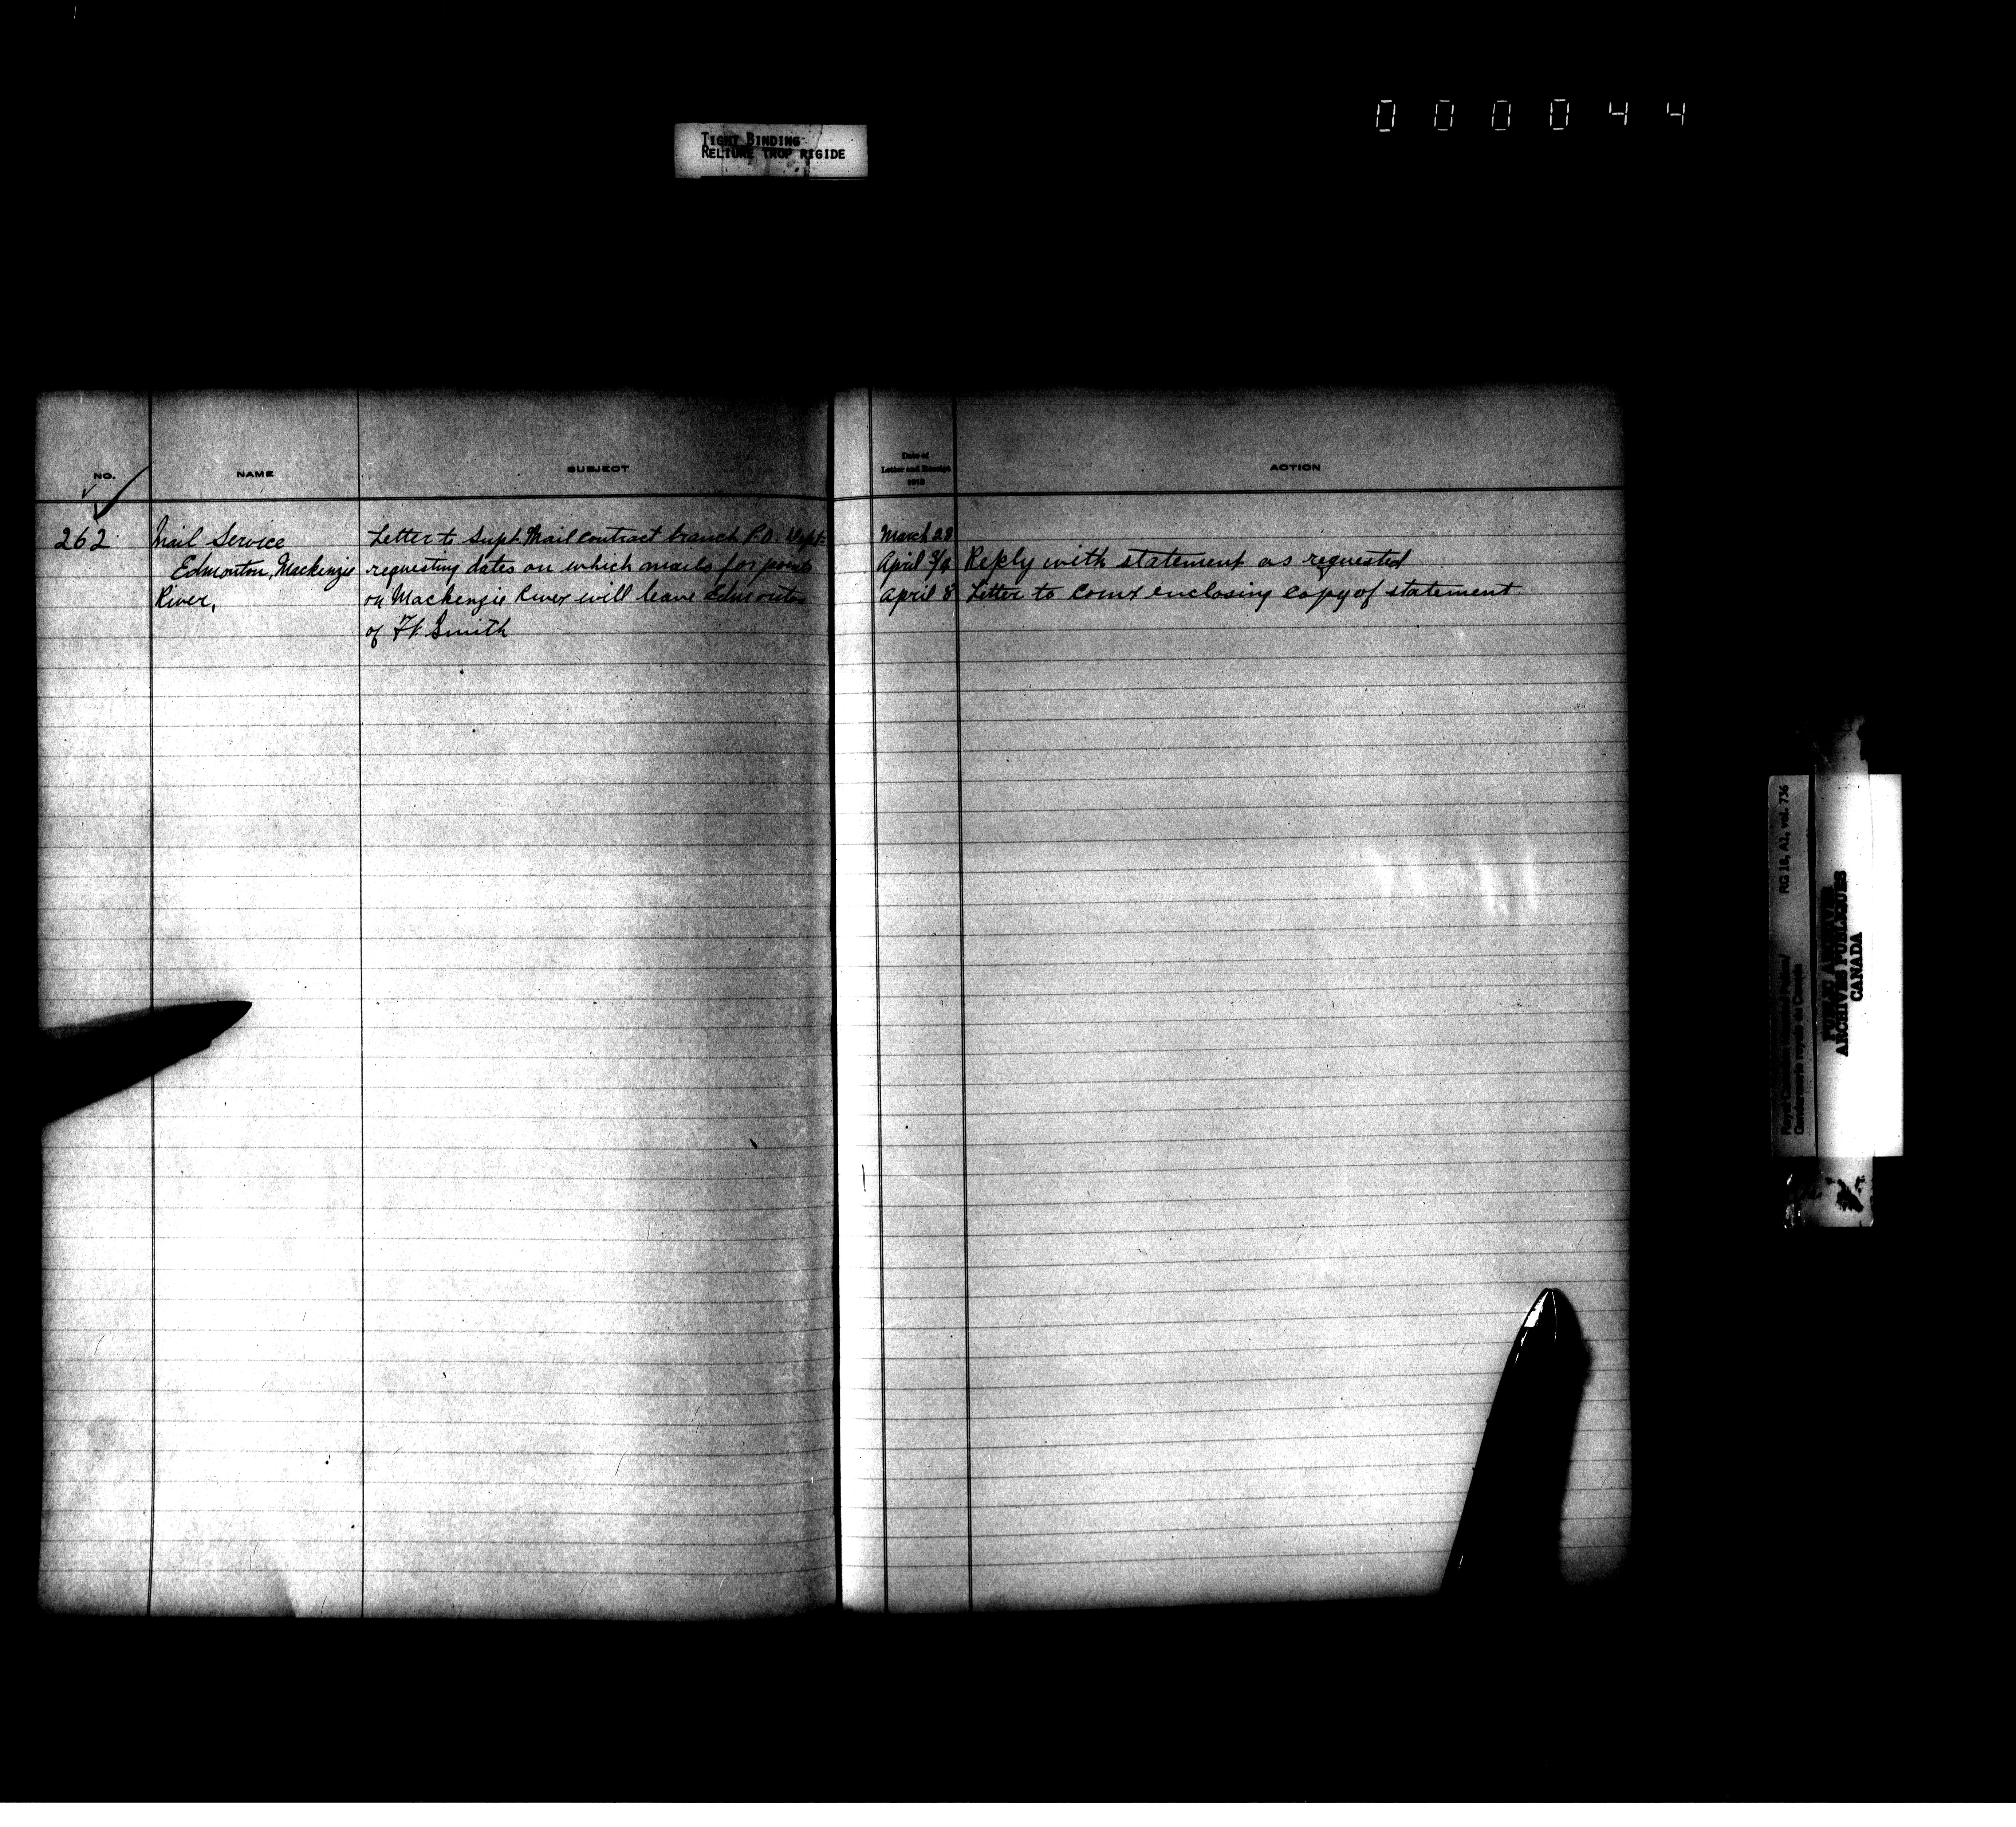 000044
TIGHT BINDING
RELIURE TROP RIGIDE
NO. NAME SUBJECT
262 Mail Service Letter to Supt. Mail Contract branch P.O. Dept.
Edmonton, Mackenzie requesting dates on which mails for points
River, on Mackenzie River will leave Edmonton
of Ft Smith
Date of
Letter and Receipt ACTION
1918
March 28
April 3/6 Reply with statement as requested
April 8 Letter to Comr enclosing copy of statement
RG 18, A1, vol. 736
Royal Canadian Mounted Police/
Gendarmerie royale du Canada
PUBLIC ARCHIVES
ARCHIVES PUBLIQUES
CANADA